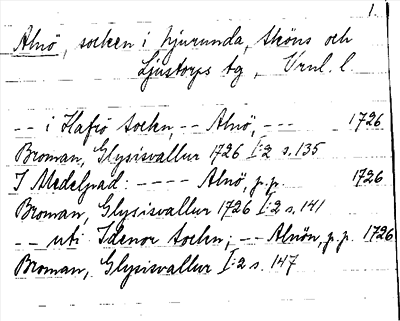 1.
Alnö, socken i Njurunda, Sköns och
Ljustorps tg, Vrnl. l.
-- i Hafrö Sockn, -- Alnö, --- 1726
Broman, Glysisvallur 1726 I:2 s. 135
I Medelpad: ---- Alnö, p.p. 1726
Broman, Glysisvallur 1726 I:2 s. 141
-- uti Idenor Sockn, -- Alnön, p.p. 1726
Broman, Glysisvallur I:2 s. 147